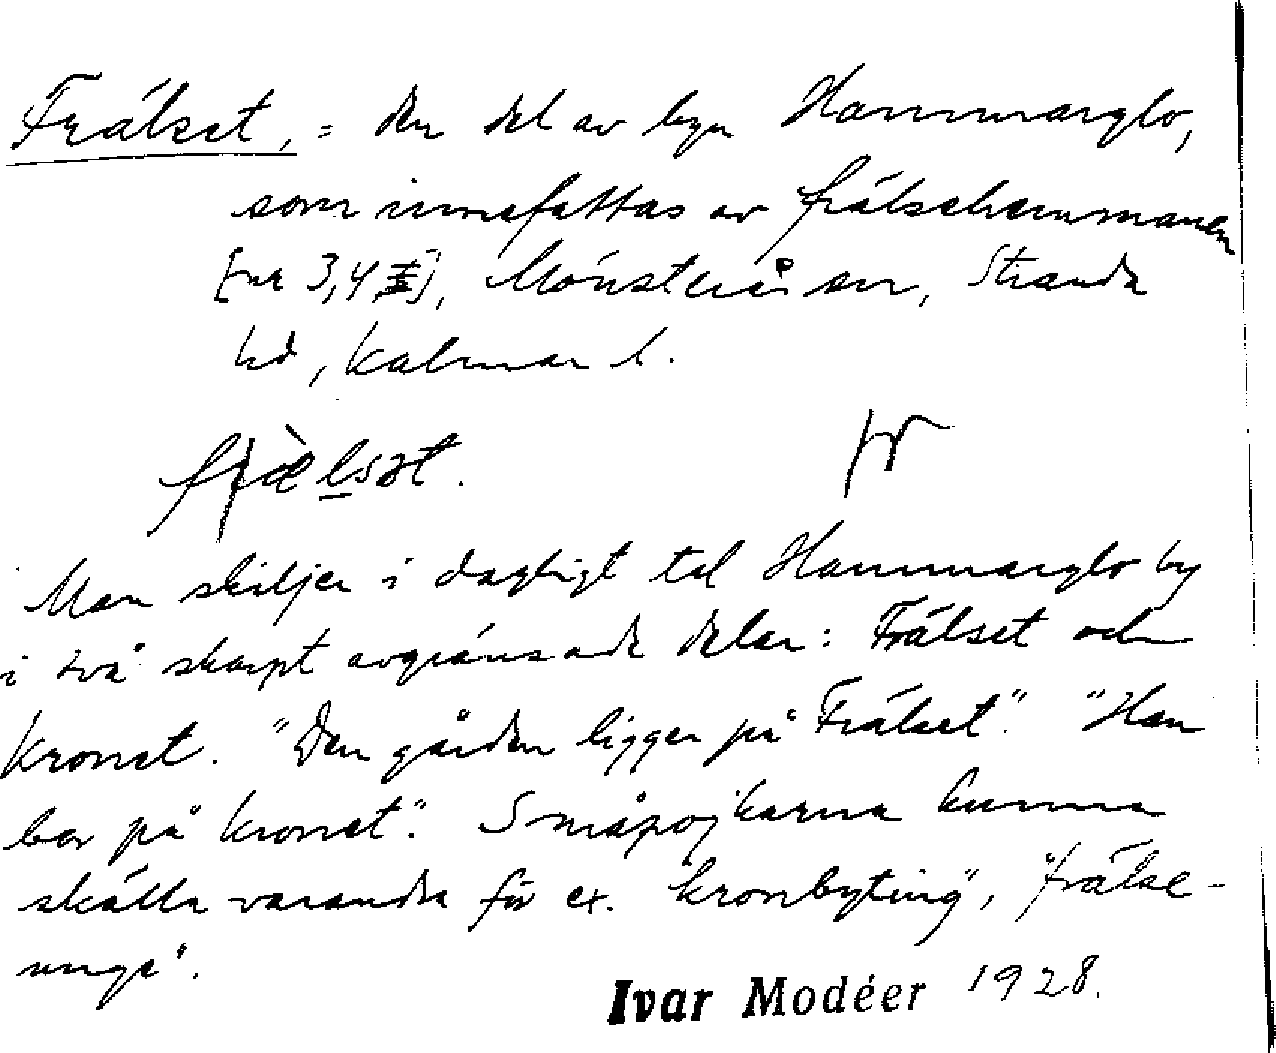 Frälset, = den del av byn Hammarglo,
som innefattas av frälsehemmanen
[nr 3,4], Mönsterås sn, Strande
hd, Kalmar l.
Man skiljer i dagligt tal Hammarglo by
i två skarpt avgränsade delar: Frälset och
Kronet. "Den gården ligger på Frälset". "Han
bor på Kronet". Småpojkarna kunna
skälla varandra för ex. "kronbyting", "frälse-
unge".
Ivar Modéer 1928.